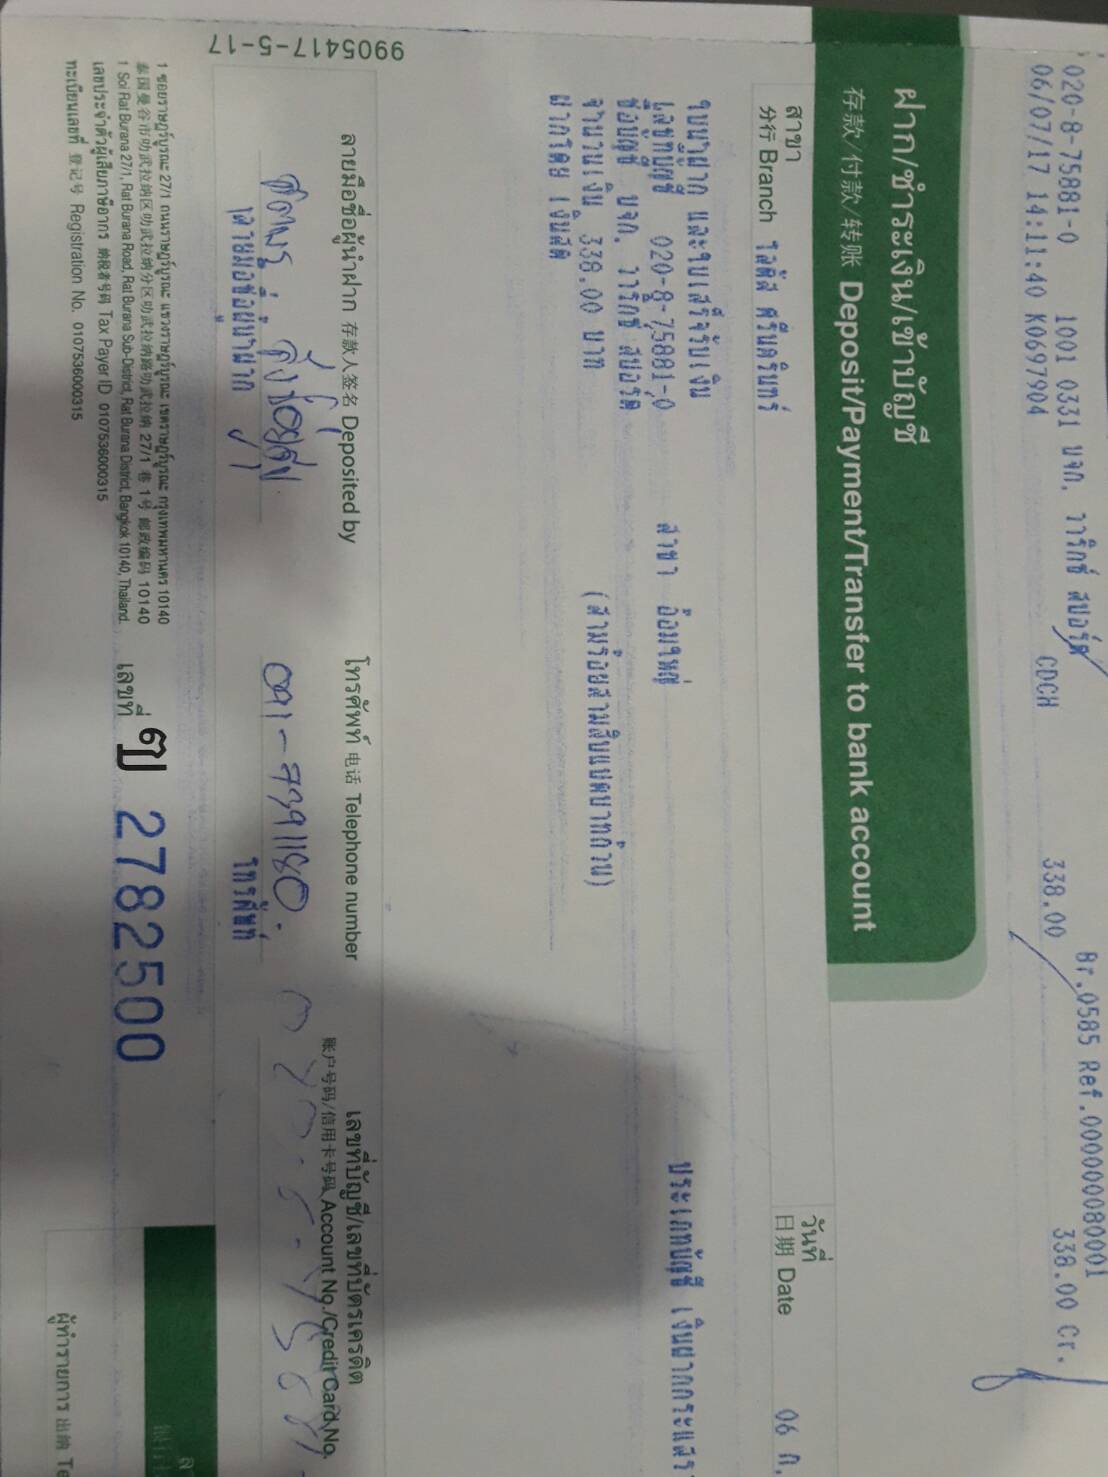 020-8-75881-0 1001 0331 บจก. วาริกซ์ สปอร์ต Br.0585 Ref.0000000080001
06/07/17 14:11:40 K0697904 CDCH 338.00 338.00 Cr.
ฝาก/ชำระเงิน/เข้าบัญชี
存款/付款/转账 Deposit/Payment/Transfer to bank account
สาขา วันที่
分行 Branch โลตัส ศรีนครินทร์ 日期 Date 06 ก.
ใบนำฝาก และใบเสร็จรับเงิน
เลขที่บัญชี 020-8-75881-0 สาขา อ้อมใหญ่ ประเภทบัญชี เงินฝากกระแสรา
ชื่อบัญชี บจก. วาริกซ์ สปอร์ต
จำนวนเงิน 338.00 บาท (สามร้อยสามสิบแปดบาทถ้วน)
ฝากโดย เงินสด
9905417-5-17
ลายมือชื่อผู้นำฝาก 存款人签名 Deposited by โทรศัพท์ 电话 Telephone number เลขที่บัญชี/เลขที่บัตรเครดิต
账户号码/信用卡号码 Account No./Credit Card No.
ลายมือชื่อผู้นำฝาก โทรศัพท์
1 ซอยราษฎร์บูรณะ 27/1 ถนนราษฎร์บูรณะ แขวงราษฎร์บูรณะ เขตราษฎร์บูรณะ กรุงเทพมหานคร 10140
泰国曼谷市叻武拉纳区叻武拉纳分区叻武拉纳路叻武拉纳 27/1 巷 1号 邮政编码 10140
1 Soi Rat Burana 27/1, Rat Burana Road, Rat Burana Sub-District, Rat Burana District, Bangkok 10140, Thailand.
เลขประจำตัวผู้เสียภาษีอากร 纳税者号码 Tax Payer ID 0107536000315
ทะเบียนเลขที่ 登记号 Registration No. 0107536000315
เลขที่ ศข 2782500
ผู้ทำรายการ 出纳 Te